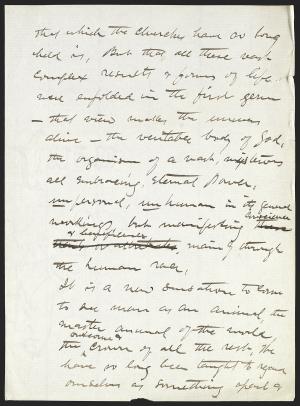 that which the churches have so long
held is, But that all these vast
complex results & forms of life
were enfolded in the first germ
— that view makes the universe
alive — the veritable body of God,
the organism of a vast, mysterious
all embracing, eternal Power,
impersonal, unhuman in its general
workings, but manifesting
& beneficence mainly through
the human race,
It is a new sensation to come
to see man as an animal, the
master animal of the world,
the outcome & crown of all the rest. We
have so long been taught to regard
ourselves as something apart &